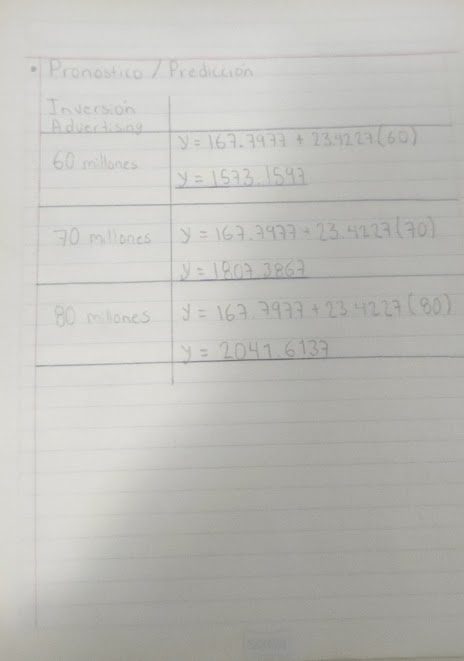 • Pronostico / Predicción
Inversión
Advertising
y = 167.7977 + 23.4227(60)
60 millones
y = 1573.1597
70 millones y = 167.7977 + 23.4227(70)
y = 1807.3867
80 millones y = 167.7977 + 23.4227(80)
y = 2041.6137